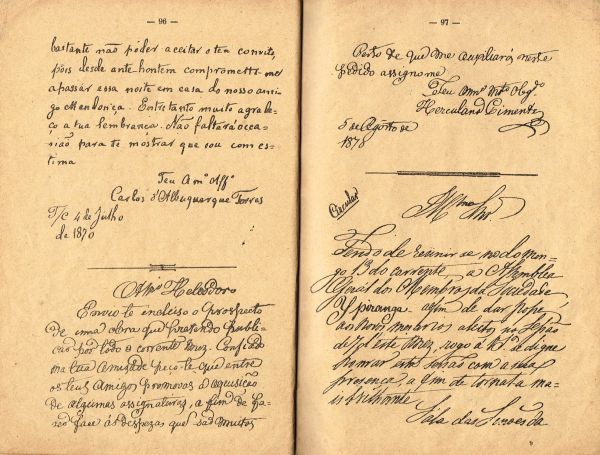 — 96 —
bastante não poder aceitar o teu convite,
pois desde ante-hontem comprometti-me
a passar essa noite em casa do nosso ami-
go Mendonça. Entretanto muito agrade-
ço a tua lembrança. Não faltará occa-
sião para te mostrar que sou com es-
tima
Teu Amº Affº
Carlos d'Albuquerque Torres
T/C 4 de Julho
de 1870
Amº Heleodoro
Envio-te incluso o prospecto
de uma obra que pretendo publi-
car por todo o corrente mez. Confiado
na tua amizade peço-te que entre
os teus amigos promovas a aquisição
de algumas assignaturas, a fim de fa-
zer face ás despezas que são muitas
— 97 —
Certo de que me auxiliarás neste
pedido assigno-me
Teu Amº Mtº Obgº
Herculano Pimentel
5 de Agosto de
1878
Circular
Illmo Snr
Tendo de reunir-se no domin-
go 13 do corrente, a Assemblea
Geral dos Membros da Sociedade
Ypiranga afim de dar posse
ao novos eleitos na Sessão
de deste mez, rogo á V. Sª se digne
honrar esta sessão com a sua
presença, a fim de tornal-a ma-
is brilhante
Sala das Sessões da